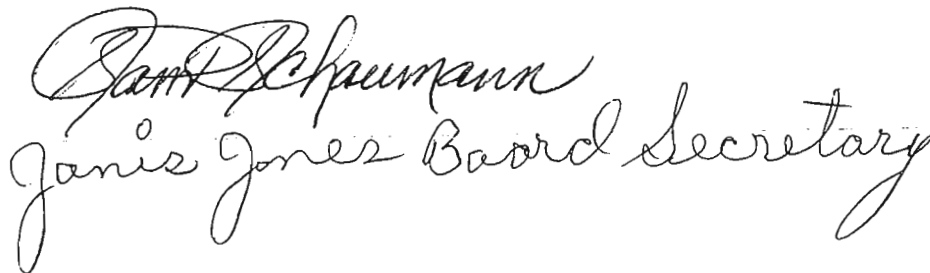 Schaumann
Janis Jones Board Secretary